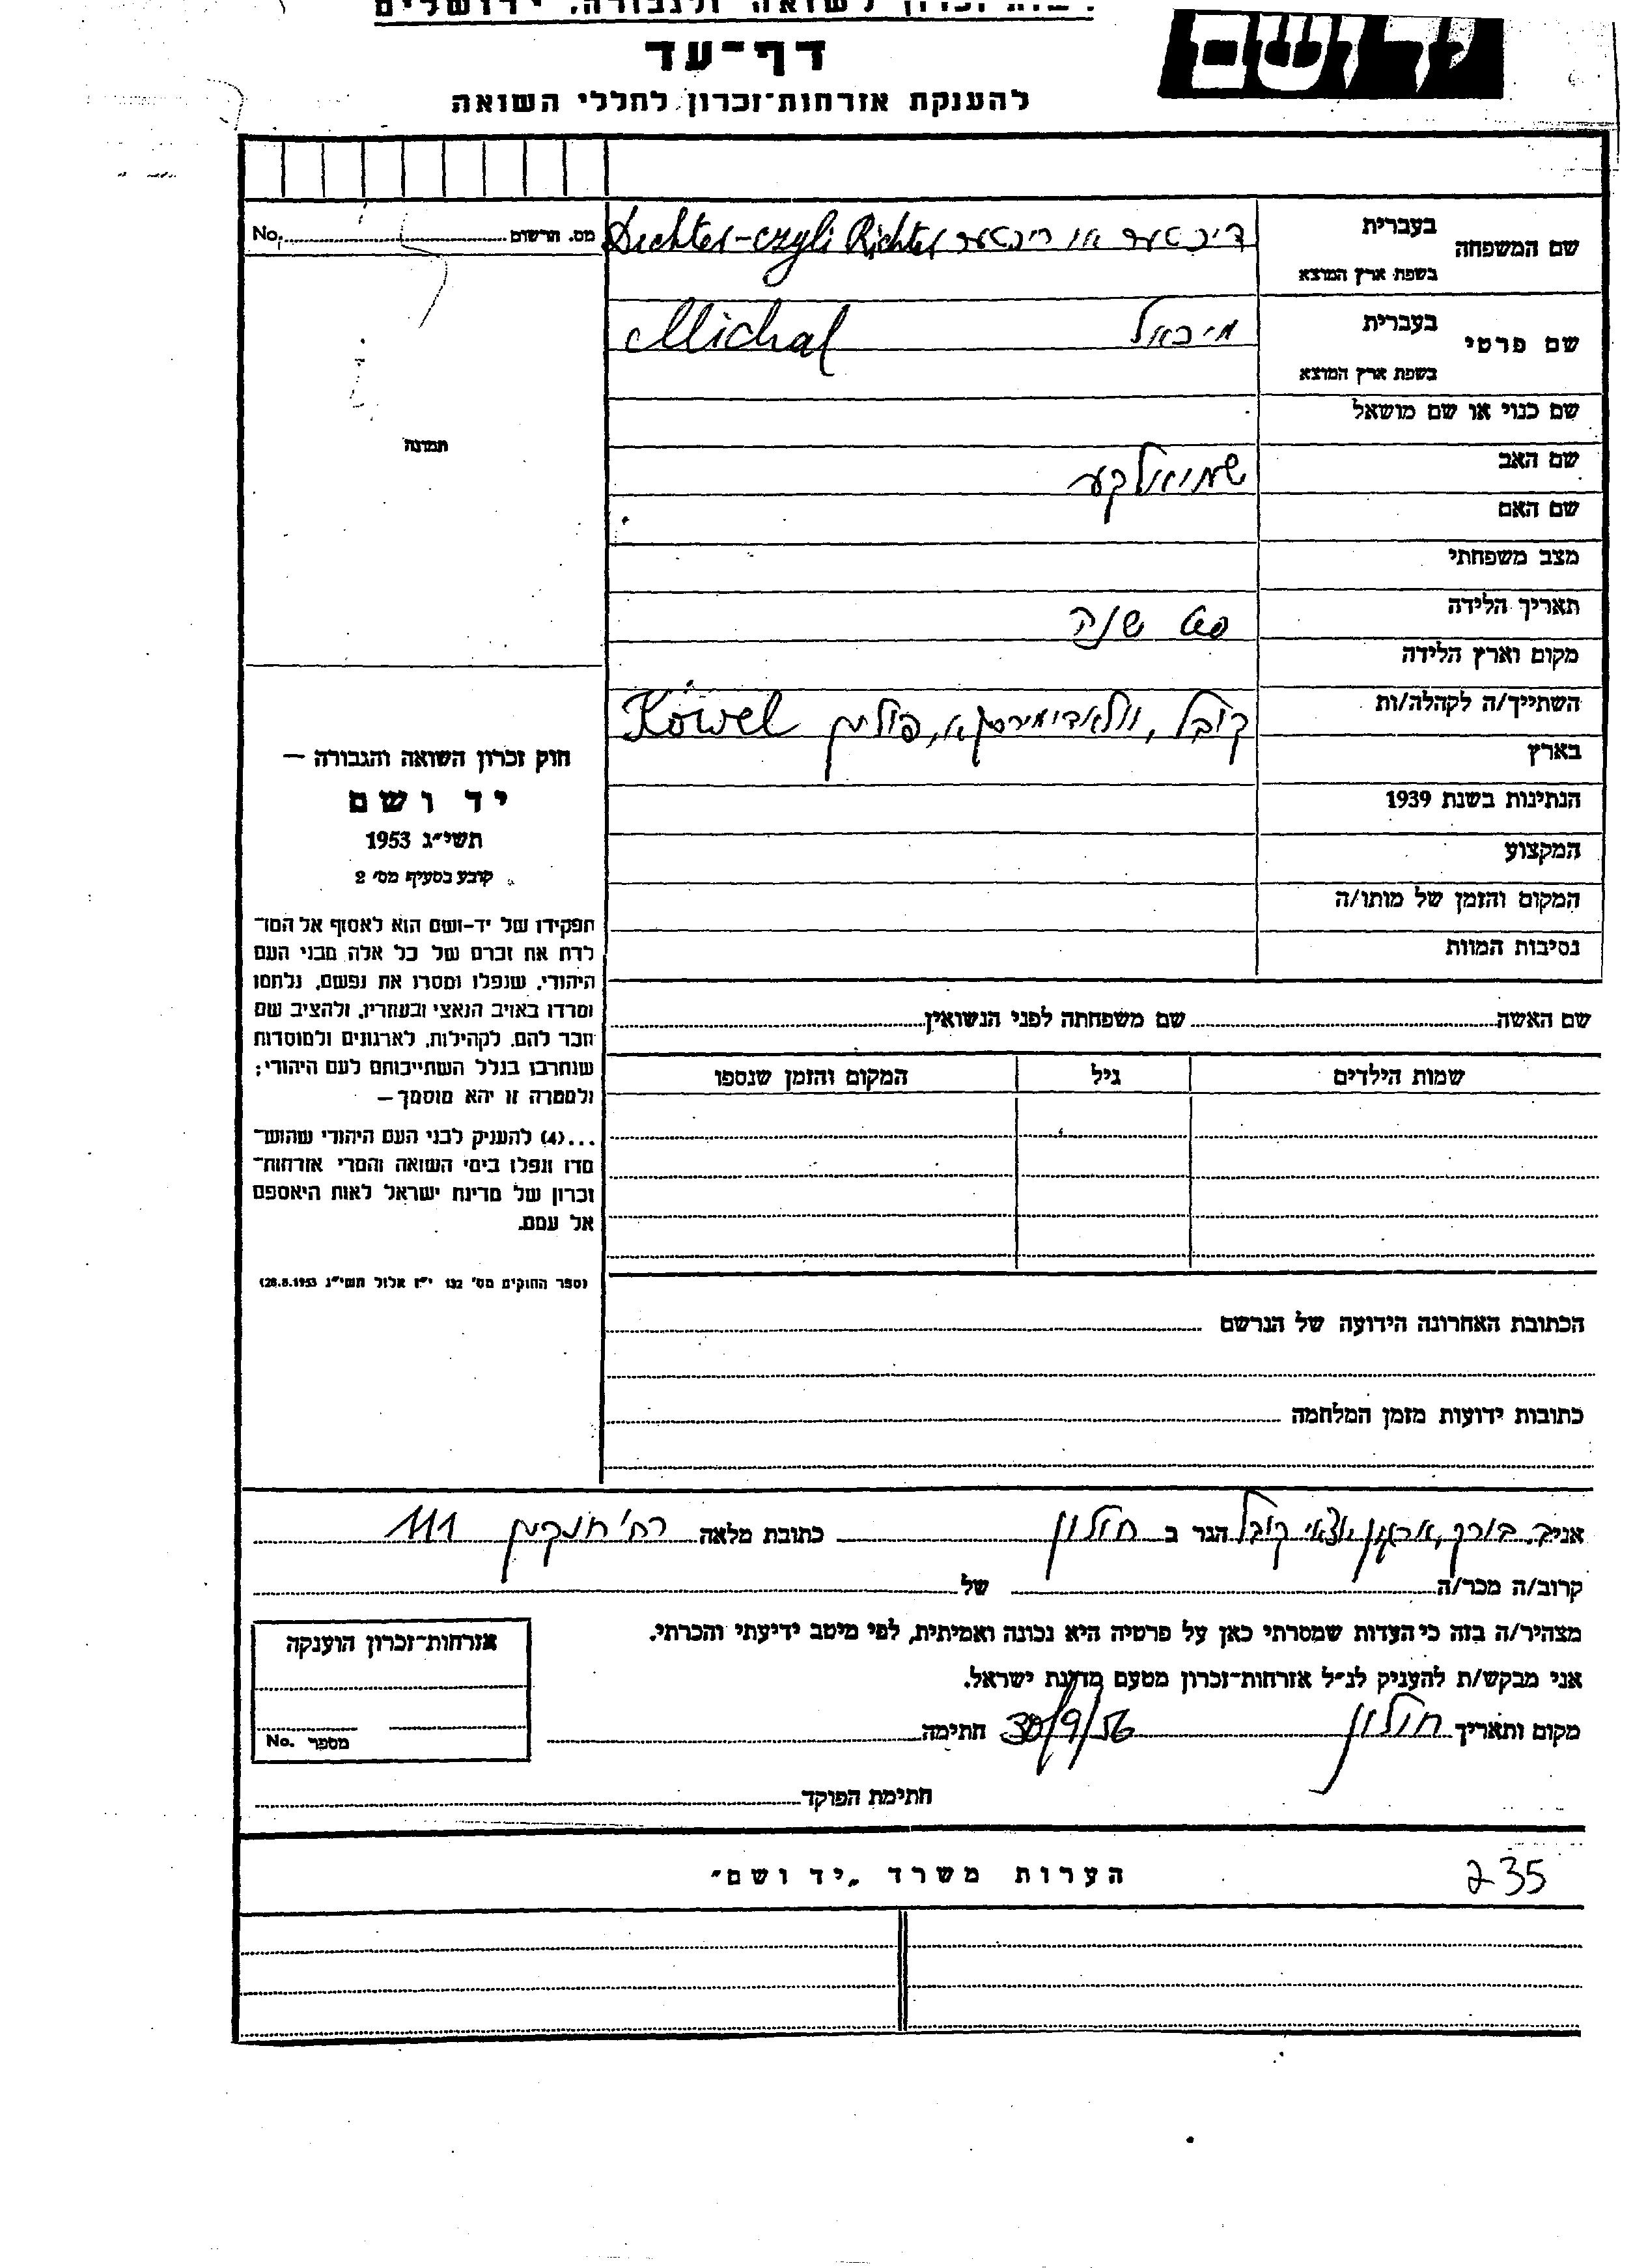 לשואה ולגבורה. ירושלים
דף־עד
להענקת אזרחות־זכרון לחללי השואה
יד ושם
No. מס. הרשום
שם המשפחה
בעברית
בשפת ארץ המוצא
דיכטער או ריכטער Dechter-czyli Richter
שם פרטי
בעברית
בשפת ארץ המוצא
מיכאל Michal
שם כנוי או שם מושאל
שם האב
שמואלקע
שם האם
מצב משפחתי
תאריך הלידה
שנה
מקום וארץ הלידה
השתייך/ה לקהלה/ות
קובל, פולין Kowel
בארץ
הנתינות בשנת 1939
המקצוע
המקום והזמן של מותו/ה
נסיבות המוות
תמונה
חוק זכרון השואה והגבורה —
יד ושם
תשי״ג 1953
קובע בסעיף מס׳ 2
תפקידו של יד-ושם הוא לאסוף אל המו־
לדת את זכרם של כל אלה מבני העם
היהודי, שנפלו ומסרו את נפשם, נלחמו
ומרדו באויב הנאצי ובעוזריו, ולהציב שם
וזכר להם, לקהילות, לארגונים ולמוסדות
שנחרבו בגלל השתייכותם לעם היהודי;
ולמטרה זו יהא מוסמך —
...(4) להעניק לבני העם היהודי שהוש־
מדו ונפלו בימי השואה והמרי אזרחות־
זכרון של מדינת ישראל לאות היאספם
אל עמם.
(ספר החוקים מס׳ 132 י״ז אלול תשי״ג 28.8.1953)
שם האשה שם משפחתה לפני הנשואין
שמות הילדים גיל המקום והזמן שנספו
הכתובת האחרונה הידועה של הנרשם
כתובות ידועות מזמן המלחמה
אני ב. בורק, ארגון יוצאי קובל הגר ב חולון כתובת מלאה רח׳ חנקין 111
קרוב/ה מכר/ה של
מצהיר/ה בזה כי העדות שמסרתי כאן על פרטיה היא נכונה ואמיתית, לפי מיטב ידיעתי והכרתי.
אני מבקש/ת להעניק לנ״ל אזרחות־זכרון מטעם מדינת ישראל.
מקום ותאריך חולון 30/9/56 חתימה
אזרחות־זכרון הוענקה
מספר No.
חתימת הפוקד
הערות משרד „יד ושם״
235